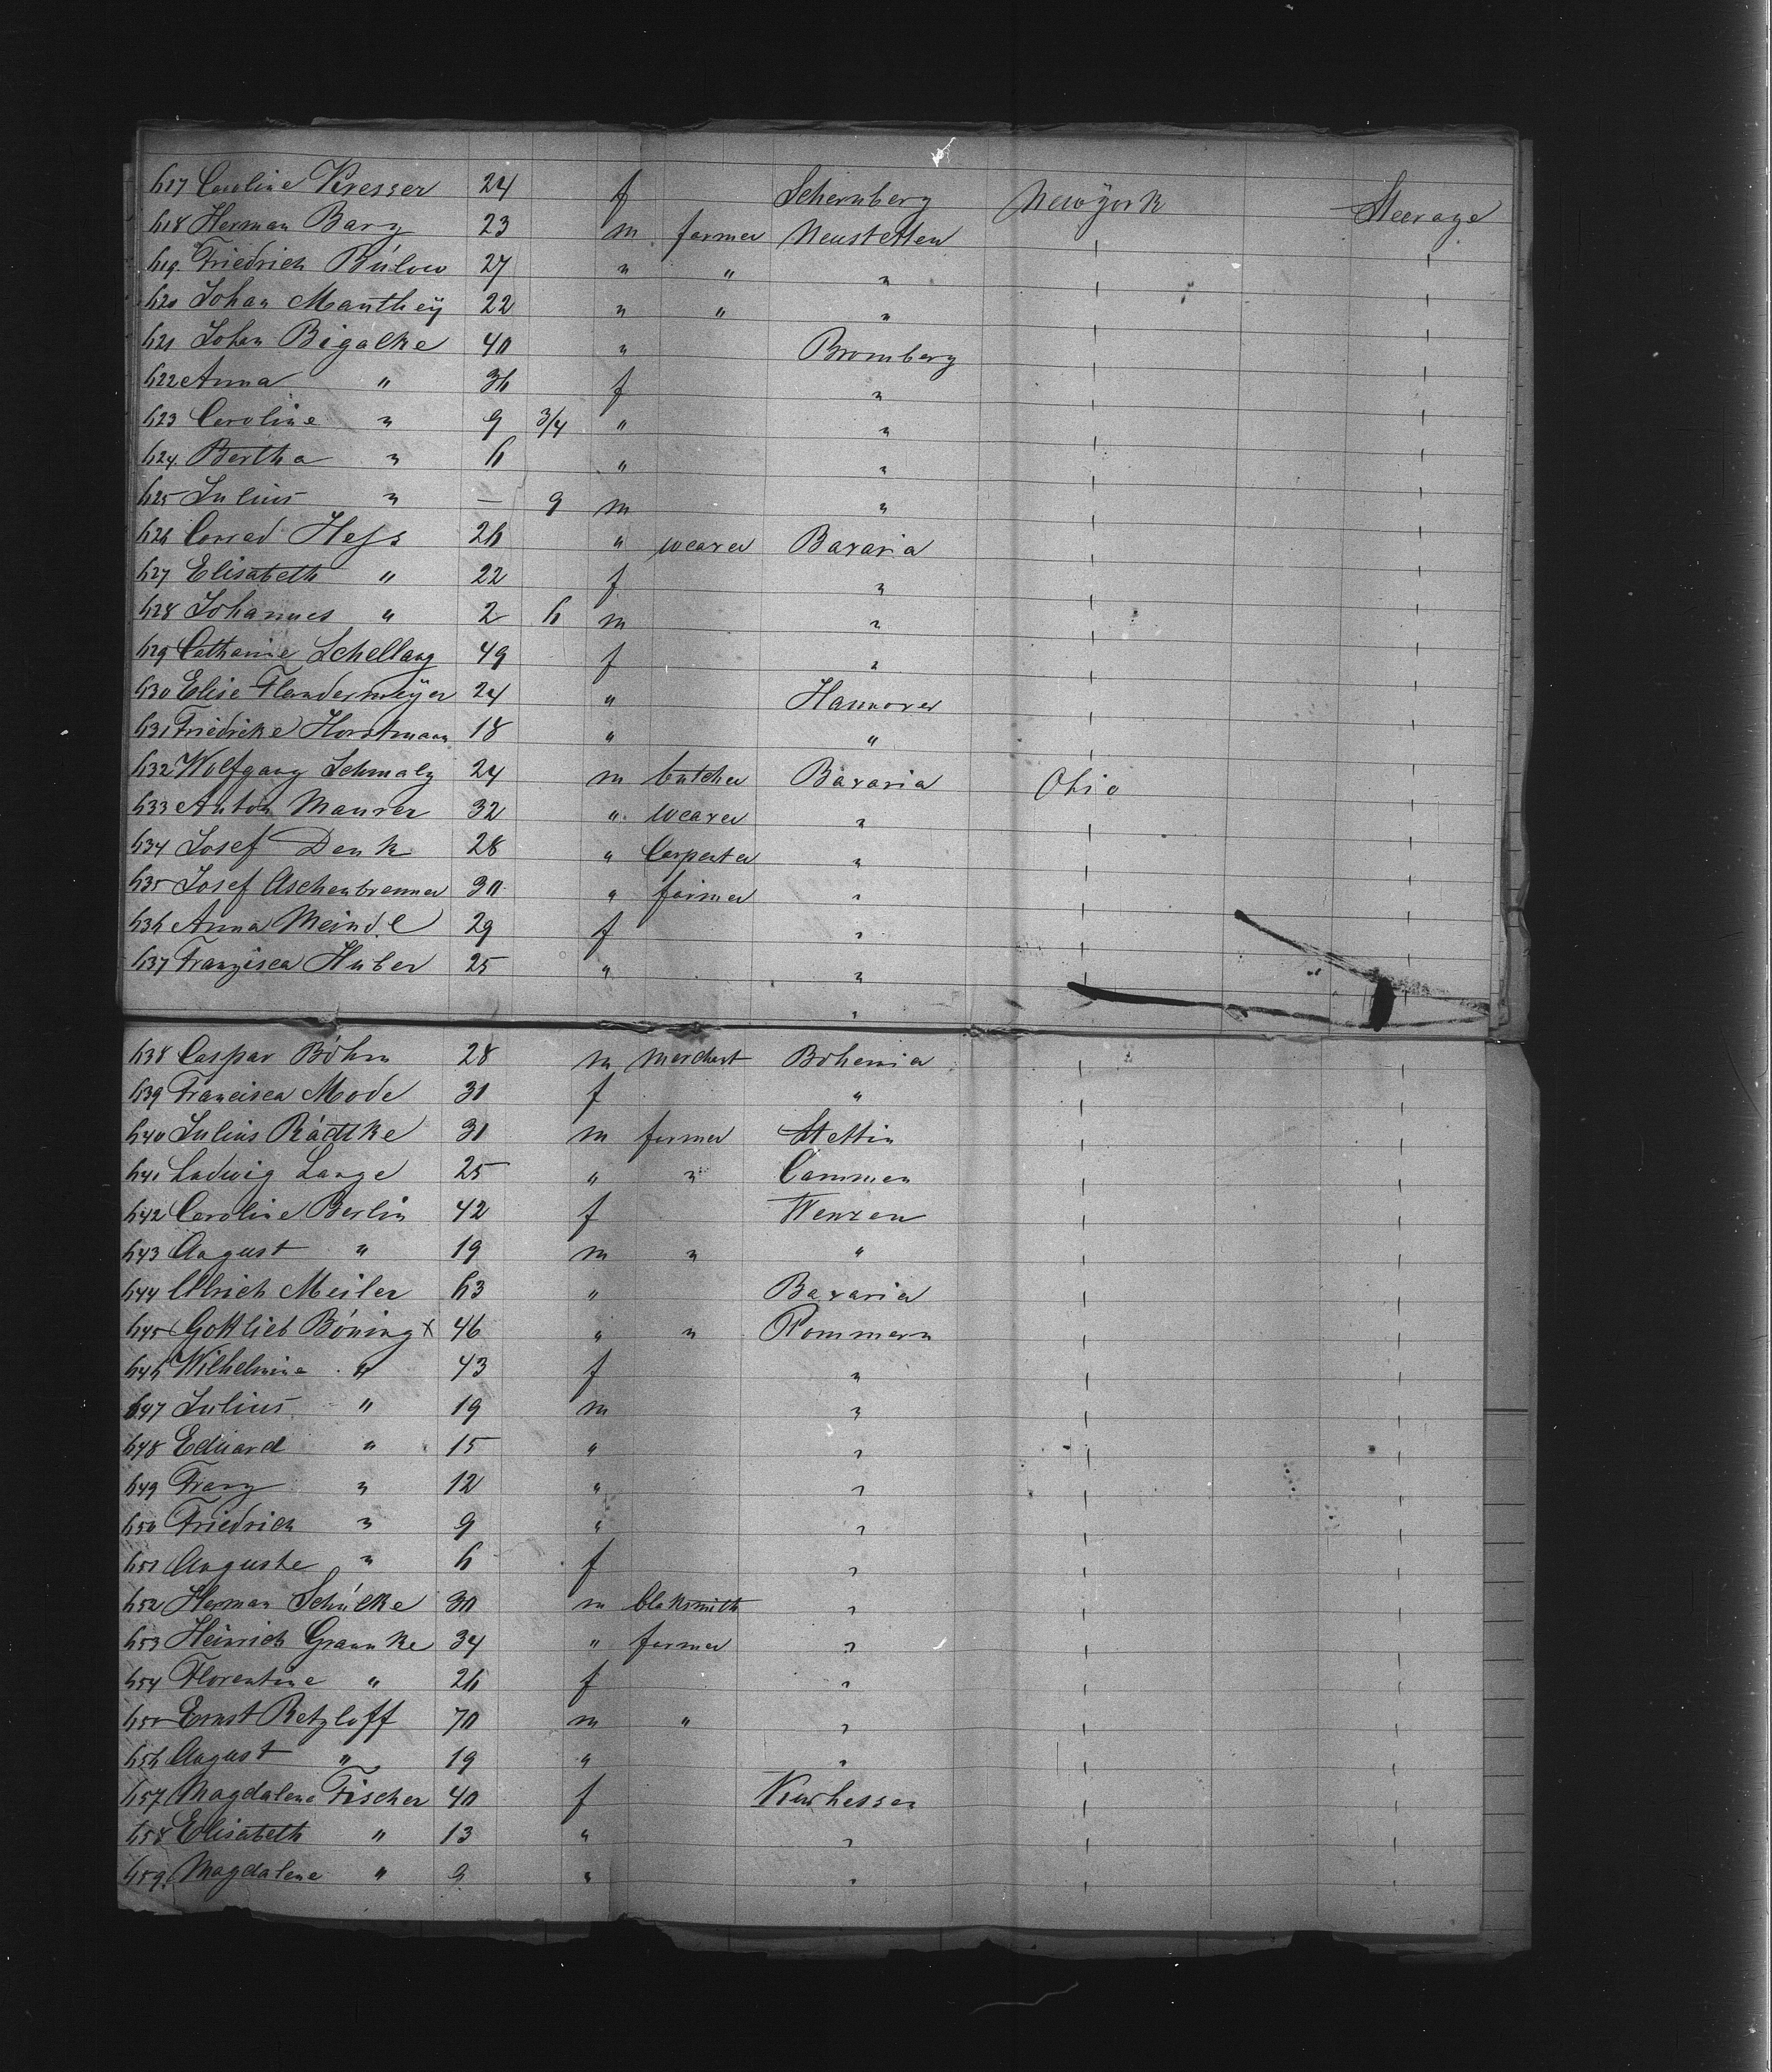 617 Caroline Kresser 24 f Schernberg Newyork Steerage
618 Herman Barz 23 m farmer Neustetten
619. Friedrich Bülow 27 " " "
620 Johan Manthey 22 " " "
621 Johan Bigalke 40 " Bromberg
622 Anna " 36 f "
623 Caroline " 9 3/4 " "
624. Bertha " 6 " "
625 Julius " — 9 m "
626 Conrad Hess 26 " weaver Bavaria
627 Elisabeth " 22 f "
628 Johannes " 2 6 m "
629 Catharine Schellang 49 f "
630 Elise Flandermeyer 24 " Hannover
631 Friedricke Horstmann 18 " "
632 Wolfgang Schmalz 24 m butcher Bavaria Ohio
633 Anton Maurer 32 " weaver "
634 Josef Denk 28 " Carpenter "
635 Josef Aschenbrenner 30 " farmer "
636 Anna Meindl 29 f "
637 Franzisca Huber 25 " "
"
638 Caspar Böhm 28 m merchant Bohemia
639 Francisca Mode 31 f "
640 Julius Rädtke 31 m farmer Stettin
641 Ludwig Lange 25 " " Cammen
642 Caroline Berlin 42 f Wenzen
643 August " 19 m " "
644 Ulrich Meiler 63 " Bavaria
645 Gottlieb Böning x 46 " " Pommern
646 Wilhelmine " 43 f "
647 Julius " 19 m "
648 Eduard " 15 " "
649 Franz " 12 " "
650 Friedrich " 9 " "
651 Auguste " 6 f "
652 Herman Schülke 30 m blaksmith "
653 Heinrich Graunke 34 " farmer "
654 Florentine " 26 f "
655 Ernst Retzloff 70 m " "
656 August " 19 " "
657 Magdalene Fischer 40 f Kurhessen
658 Elisabeth " 13 " "
659. Magdalene " 9 " "